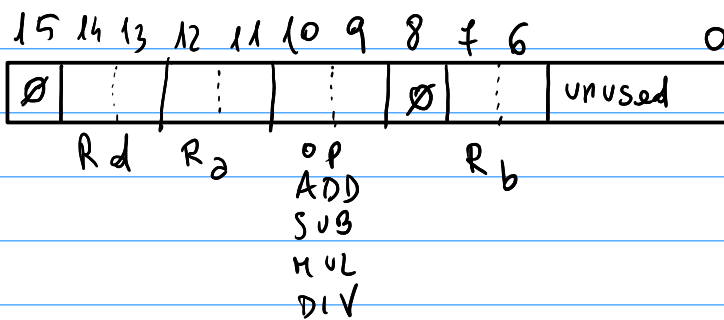 15 14 13 12 11 10 9 8 7 6 0
0 0 unused
Rd Ra OP Rb
ADD
SUB
MUL
DIV